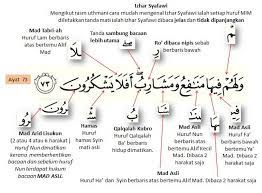 Izhar Syafawi
Mengikut raim uthmani cara mudah mengenal Izhar Syafawi ialah setiap huruf MIM
diletakkan tanda mati ialah Izhar Syafawi dibaca jelas dan tidak dipanjangkan
Mad Tabi-ah
Huruf Lam berbaris
atas bertemu Alif
Mad
Tanda sambung bacaan
lebihutama
Ro' dibaca nipis sebab
berbaris bawah
Ayat 73
وَلَهُمْ فِيهَا مَنَٰفِعُ وَمَشَارِبُ أَفَلَا يَشْكُرُونَ ٧٣
Mad Arid Lisukun
(2 atau 4 atau 6 harakat)
Huruf Nun dimatikan
kerana memberhentikan
bacaan dan sebelum huruf
Nun terdapat hukum
MAD ASLI.
Hamas
Huruf
Syin mati
Qalqalah Kubro
Huruf Qalqalah
Ba' berbaris
hidup
Mad Asli
Huruf Nun
berbaris atas
bertemu Alif
Mad. Dibaca
2 harakat saja
Mad Asli
Huruf Ha' berbaris
atas bertemu Alif
Mad. Dibaca 2
harakat saja
Mad Asli
Huruf Syin berbaris atas bertemu
Alif Mad. Dibaca 2 harakat saja